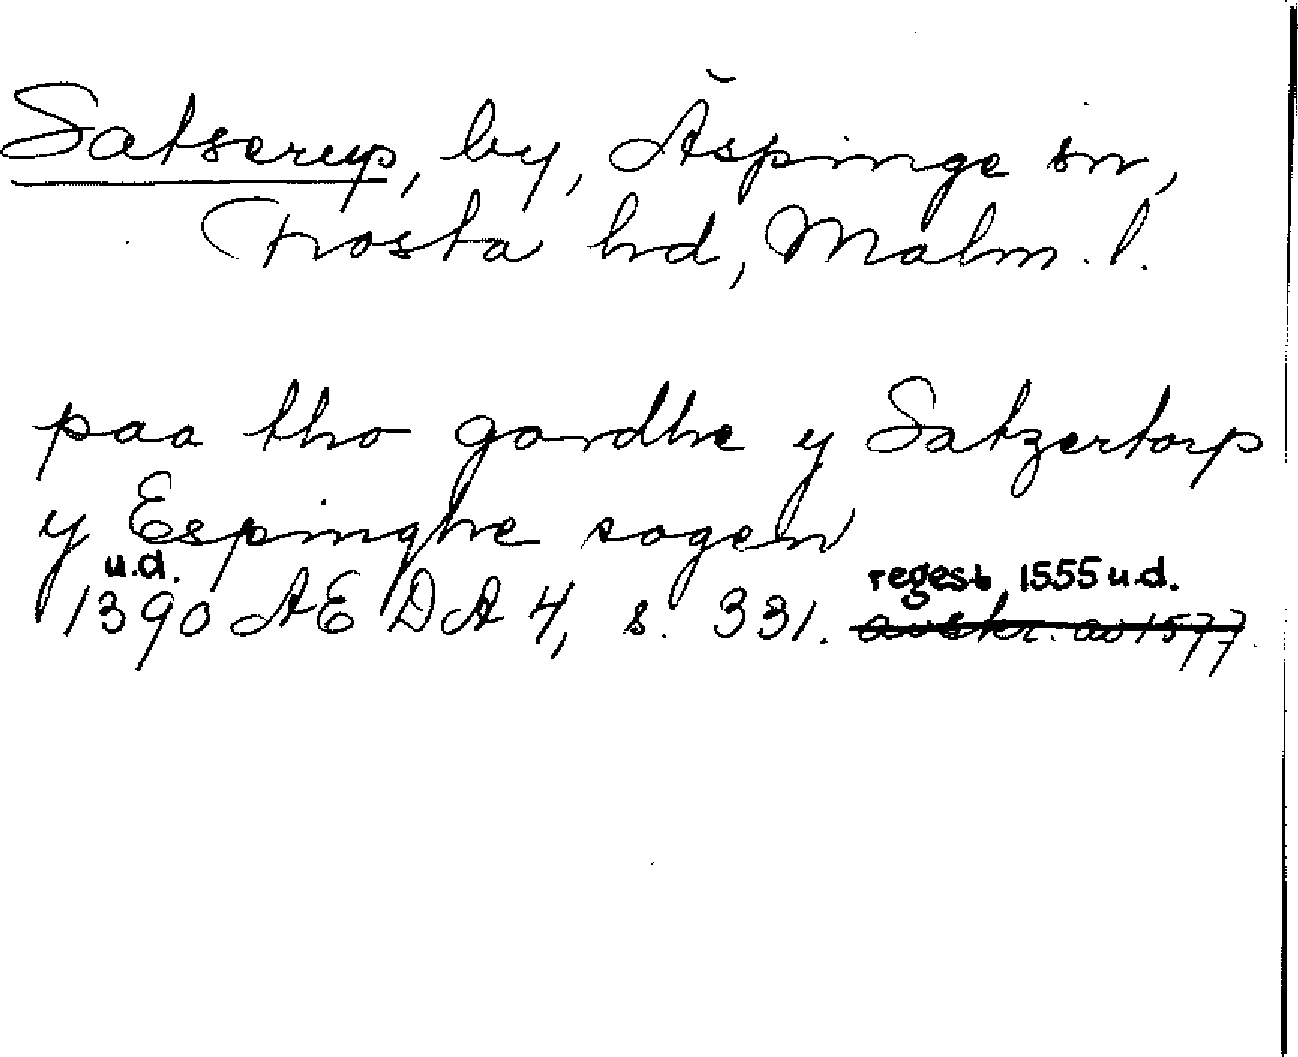 Satserup, by, Äspinge sn,
Frosta hd, Malm. l.
paa tho gordhe y Satzertorp
y Espinghe sogen
u.d. regest 1555 u.d.
1390 AE DA 4, s. 331. avskr. av 1577.